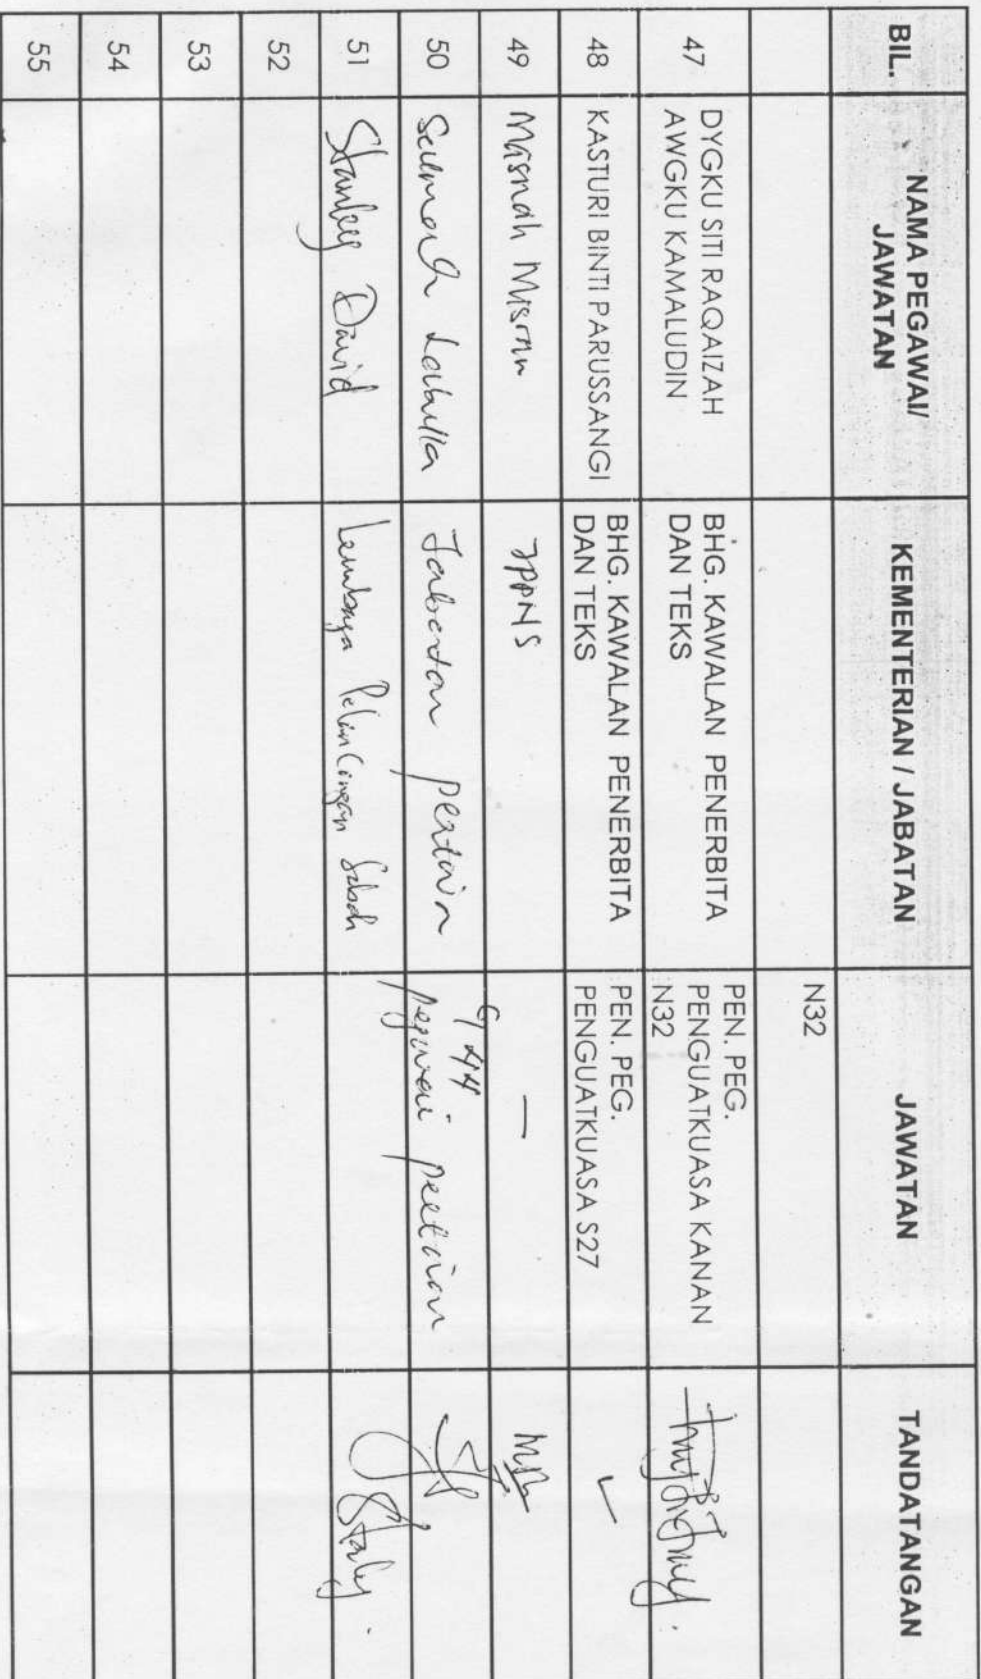 BIL.
NAMA PEGAWAI/
JAWATAN
KEMENTERIAN / JABATAN
JAWATAN
TANDATANGAN
N32
47
DYGKU SITI RAQAIZAH
AWGKU KAMALUDIN
BHG. KAWALAN PENERBITA
DAN TEKS
PEN. PEG.
PENGUATKUASA KANAN
N32
48
KASTURI BINTI PARUSSANGI
BHG. KAWALAN PENERBITA
DAN TEKS
PEN. PEG.
PENGUATKUASA S27
✓
49
Misnah Misran
JPPNS
—
50
Jabatan Pertanian
G44
Pegawai Pertanian
51
Stanley David
Lembaga Pelancongan Sabah
Stanley.
52
53
54
55